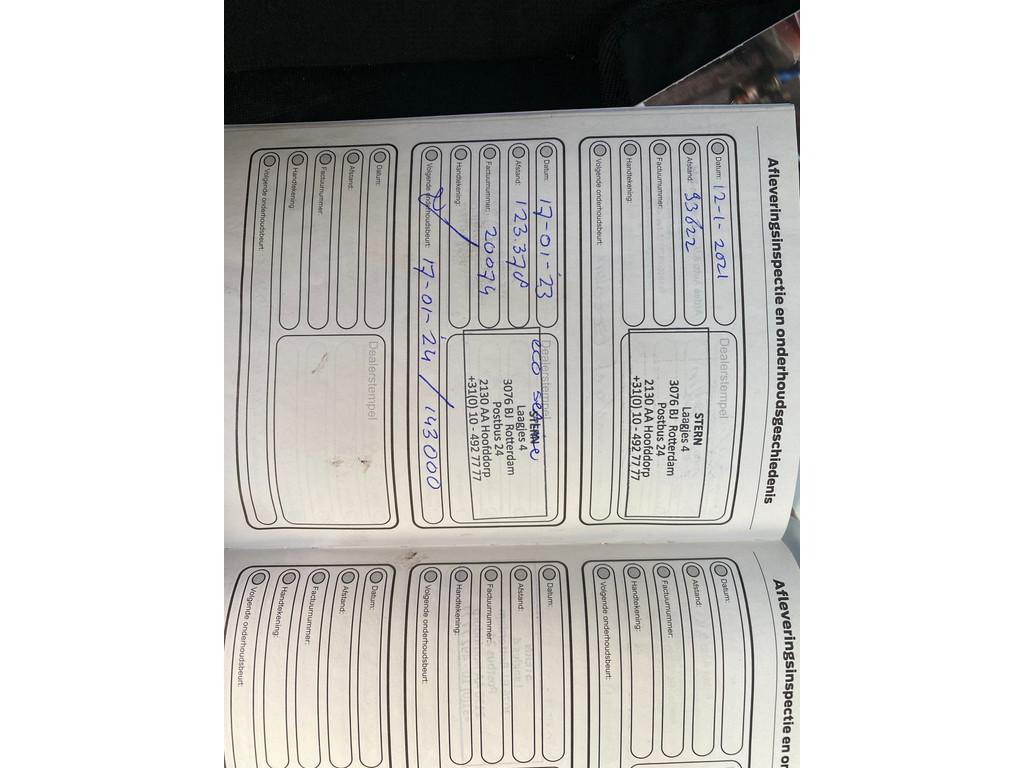 Afleveringsinspectie en onderhoudsgeschiedenis
Datum: 12-1-2021
Afstand: 93622
Factuurnummer:
Handtekening:
Volgende onderhoudsbeurt:
Dealerstempel
STERN
Laagjes 4
3076 BJ Rotterdam
Postbus 24
2130 AA Hoofddorp
+31(0) 10 - 492 77 77
Datum: 17-01-'23
Afstand: 123.378
Factuurnummer: 20074
Handtekening:
Volgende onderhoudsbeurt: 17-01-'24 / 143000
Dealerstempel
eco service
STERN
Laagjes 4
3076 BJ Rotterdam
Postbus 24
2130 AA Hoofddorp
+31(0) 10 - 492 77 77
Datum:
Afstand:
Factuurnummer:
Handtekening:
Volgende onderhoudsbeurt:
Dealerstempel
Afleveringsinspectie en on
Datum:
Afstand:
Factuurnummer:
Handtekening:
Volgende onderhoudsbeurt:
Datum:
Afstand:
Factuurnummer:
Handtekening:
Volgende onderhoudsbeurt:
Datum:
Afstand:
Factuurnummer:
Handtekening:
Volgende onderhoudsbeurt: